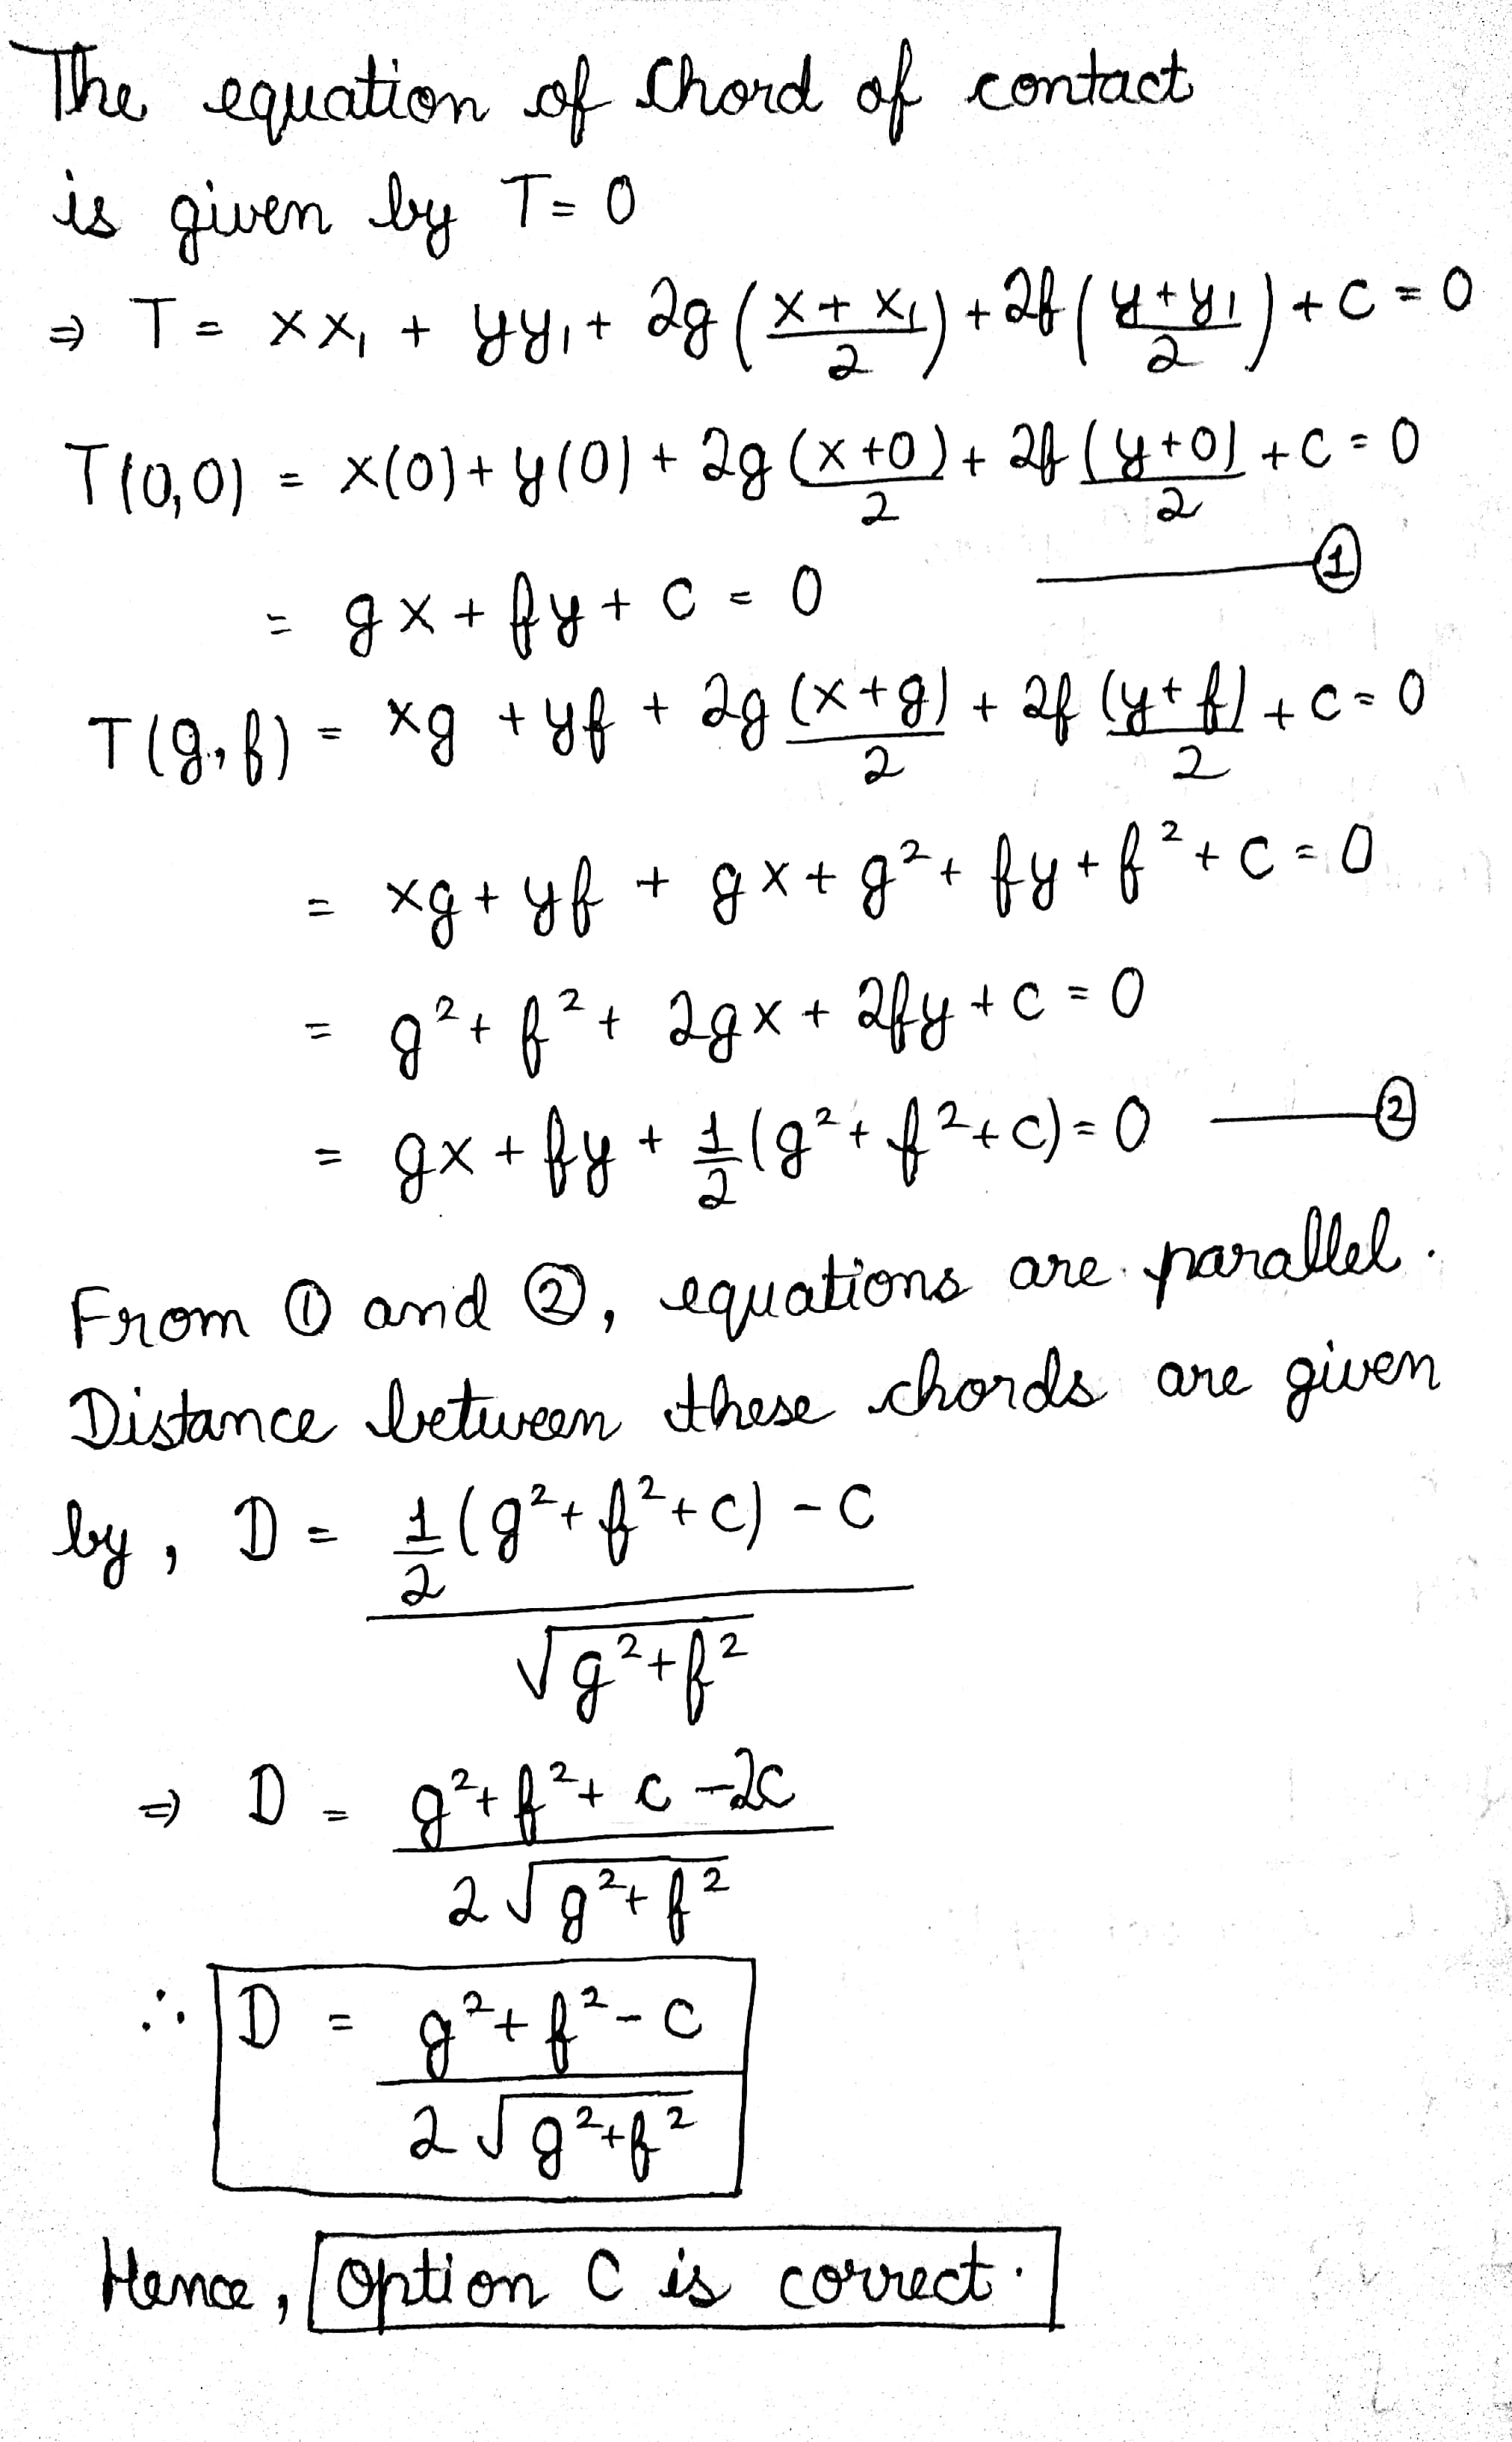 The equation of Chord of contact
is given by T = 0
⇒ T = xx₁ + yy₁ + 2g((x + x₁)/2) + 2f((y + y₁)/2) + c = 0
T(0,0) = x(0) + y(0) + 2g (x+0)/2 + 2f (y+0)/2 + c = 0
= gx + fy + c = 0 ——— ①
T(g,f) = xg + yf + 2g (x+g)/2 + 2f (y+f)/2 + c = 0
= xg + yf + gx + g² + fy + f² + c = 0
= g² + f² + 2gx + 2fy + c = 0
= gx + fy + 1/2 (g² + f² + c) = 0 ——— ②
From ① and ②, equations are parallel.
Distance between these chords are given
by, D = (1/2 (g² + f² + c) - c) / √(g² + f²)
⇒ D = (g² + f² + c - 2c) / (2√(g² + f²))
∴ D = (g² + f² - c) / (2√(g² + f²))
Hence, Option C is correct.